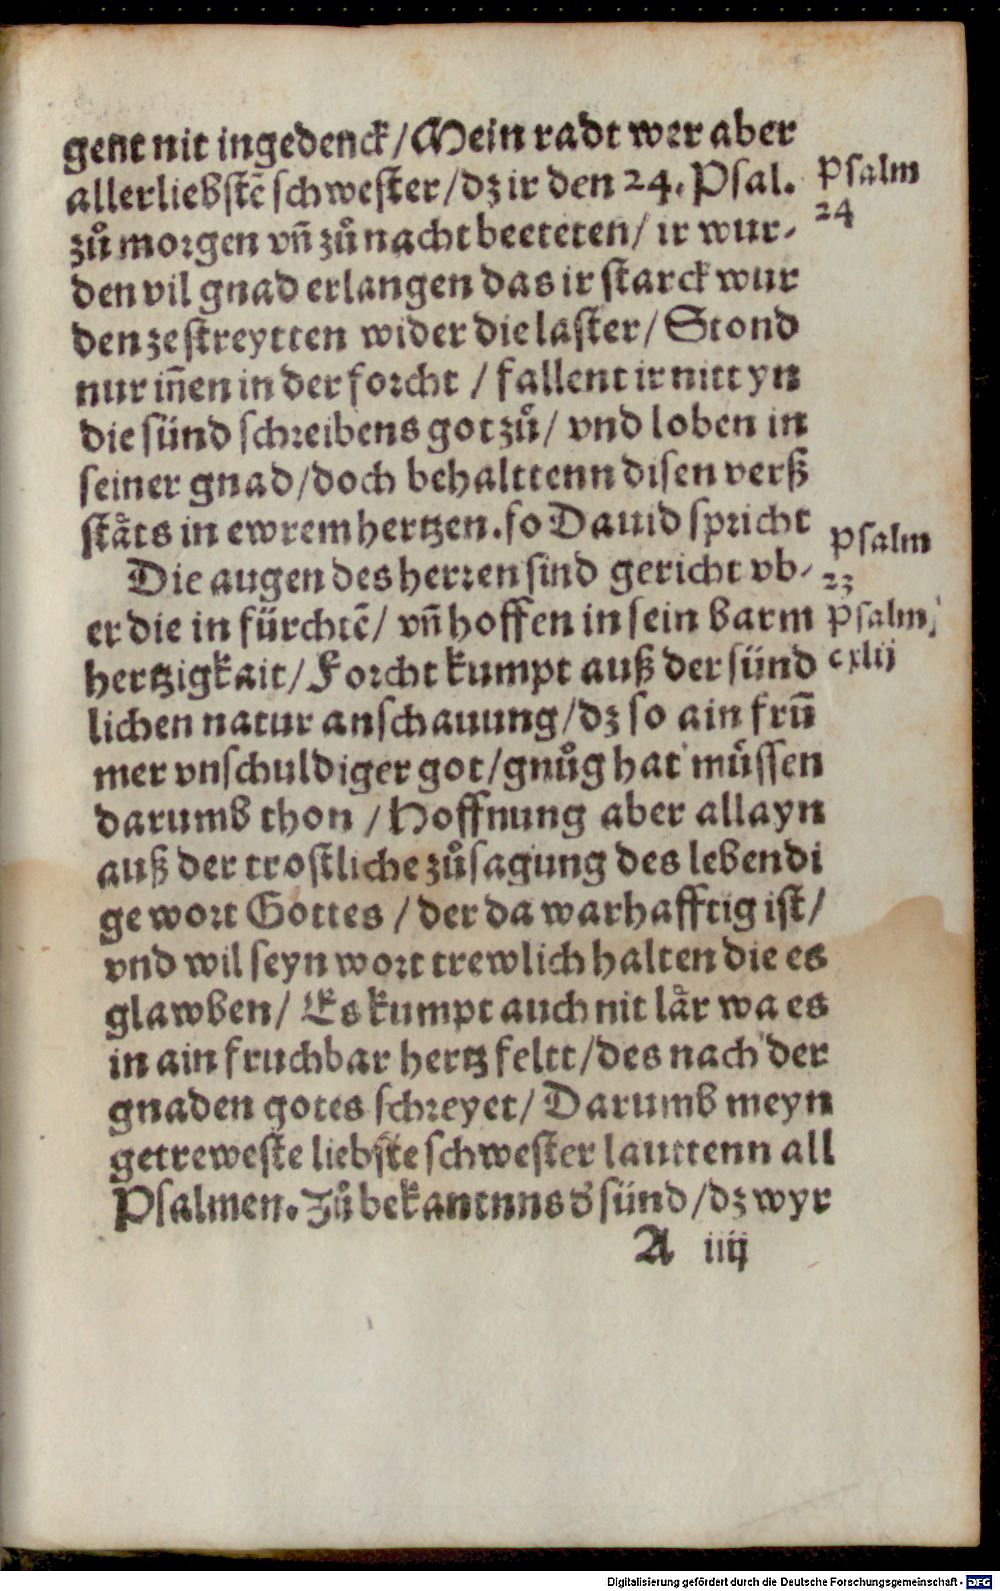 gent nit ingedenck/Mein radt wer aber
allerliebstē schwester/dz ir den 24. Psal.
Psalm
24
zů morgen vñ zů nacht beeteten/ ir wur-
den vil gnad erlangen das ir starck wur
den ze streytten wider die laster/ Stond
nur iñen in der forcht / fallent ir nitt yn
die sünd schreibens got zů/ vnd loben in
seiner gnad/doch behalttenn disen verß
stäts in ewrem hertzen. so Dauid spricht
Psalm
23
Die augen des herren sind gericht vb-
er die in fürchtē/ vñ hoffen in sein barm
Psalm
cxlij
hertzigkait/ Forcht kumpt auß der sünd
lichen natur anschauung/dz so ain frū
mer vnschuldiger got/gnůg hat müssen
darumb thon / Hoffnung aber allayn
auß der trostliche zůsagung des lebendi
ge wort Gottes / der da warhafftig ist/
vnd wil seyn wort trewlich halten die es
glawben/ Es kumpt auch nit lär wa es
in ain fruchbar hertz feltt/des nach der
gnaden gotes schreyet/ Darumb meyn
getreweste liebste schwester lauttenn all
Psalmen. Zů bekantnns d sünd/dz wyr
A iiij
Digitalisierung gefördert durch die Deutsche Forschungsgemeinschaft - DFG